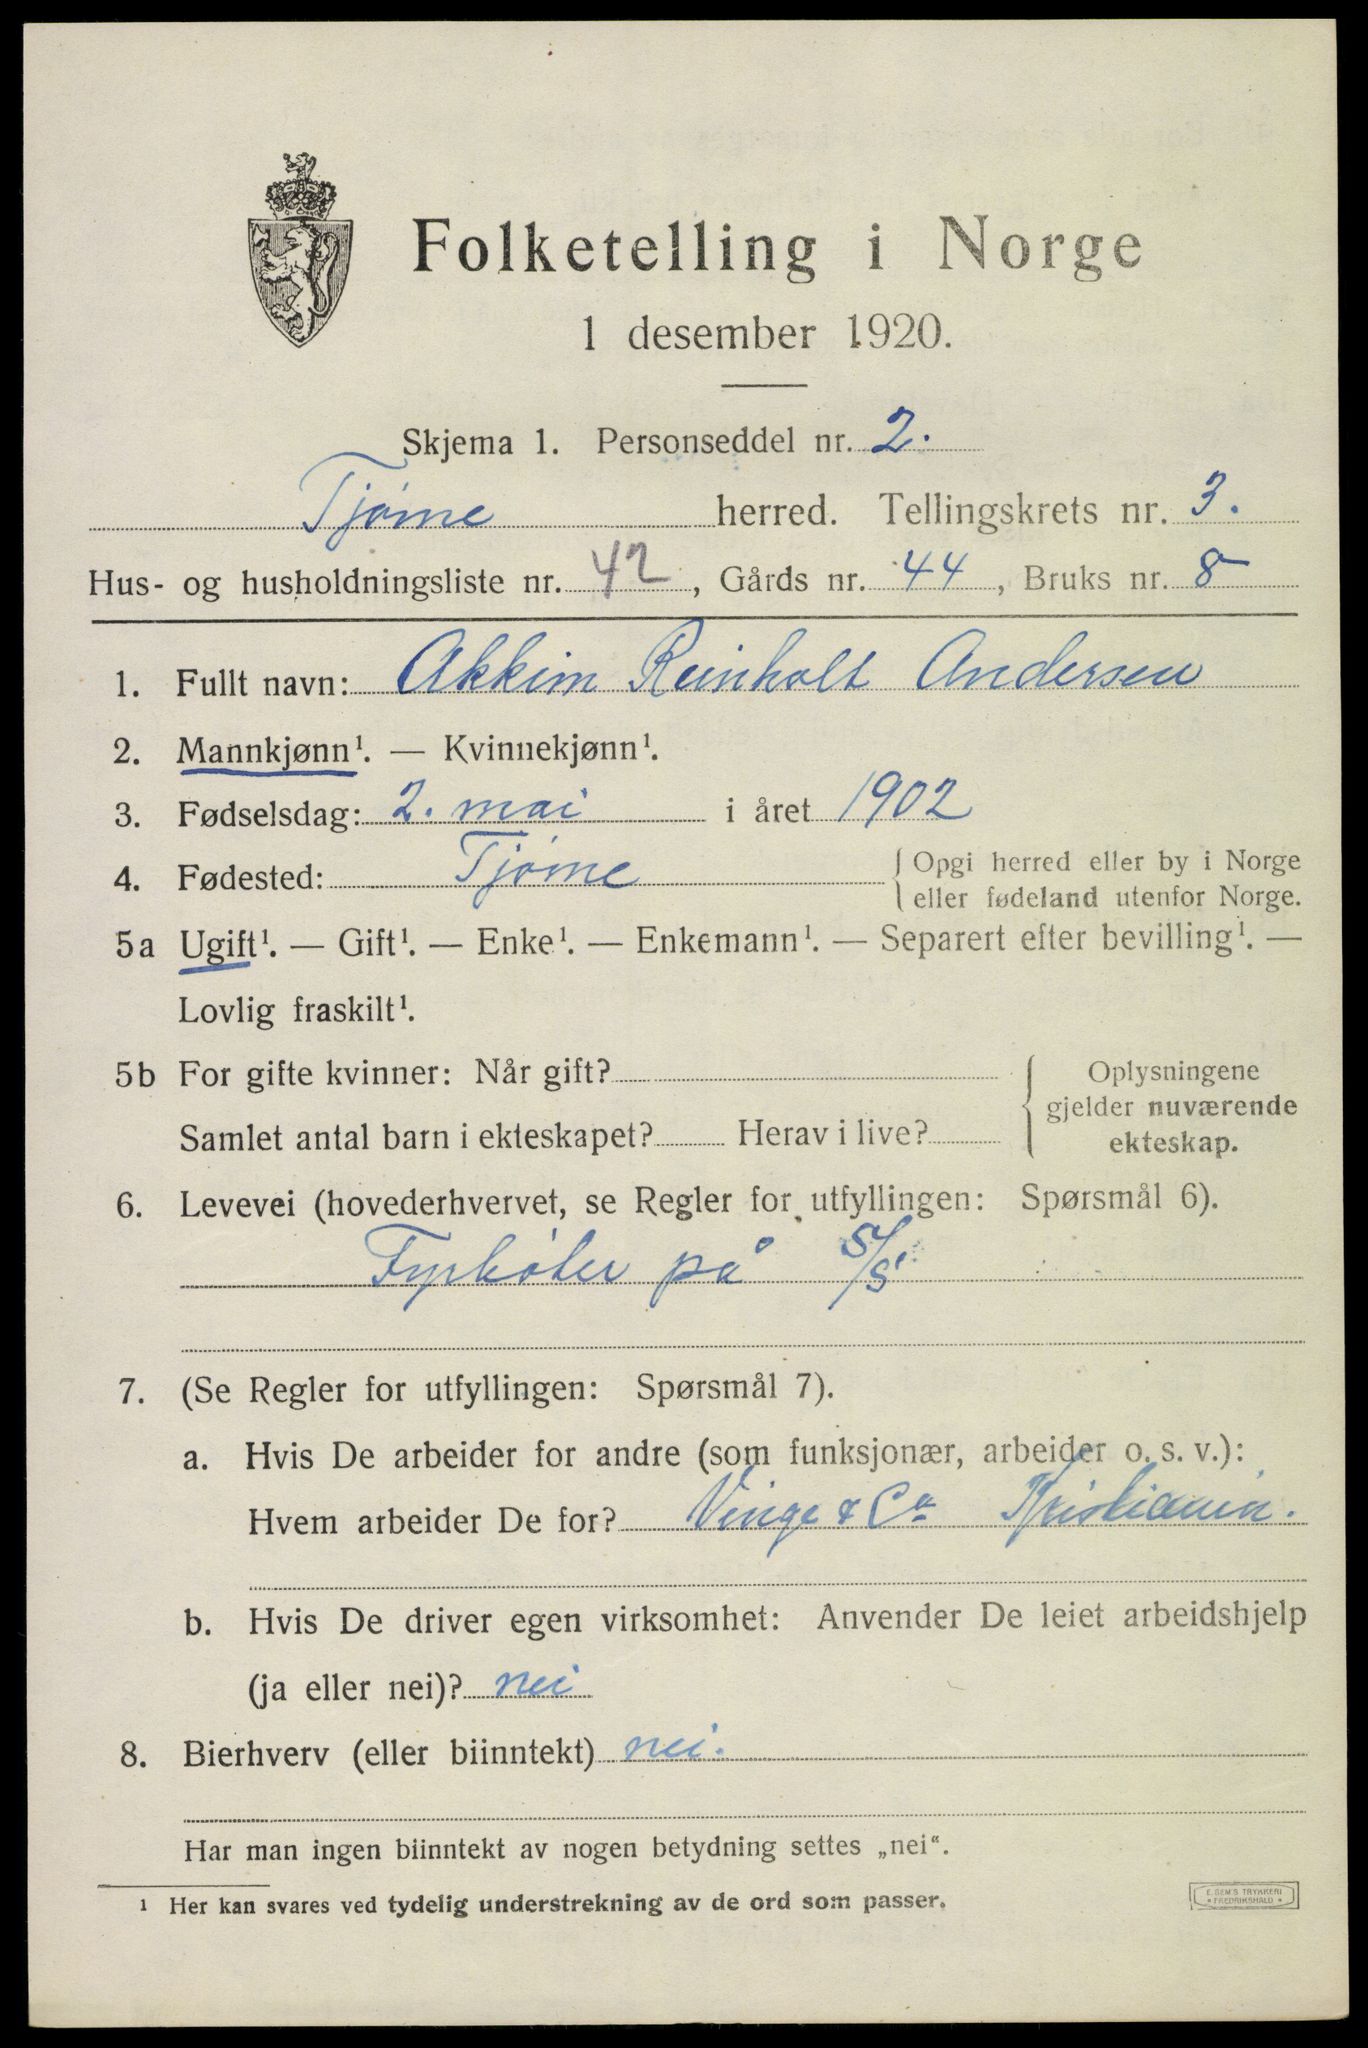 Folketelling i Norge
1 desember 1920.
Skjema 1. Personseddel nr. 2.
Tjøme herred. Tellingskrets nr. 3.
Hus- og husholdningsliste nr. 42, Gårds nr. 44, Bruks nr. 8
1. Fullt navn: Akkim Reinholt Andersen
2. Mannkjønn¹. — Kvinnekjønn¹.
3. Fødselsdag: 2. mai i året 1902
4. Fødested: Tjøme { Opgi herred eller by i Norge
eller fødeland utenfor Norge.
5a Ugift¹. — Gift¹. — Enke¹. — Enkemann¹. — Separert efter bevilling¹. —
Lovlig fraskilt¹.
5b For gifte kvinner: Når gift? { Oplysningene
gjelder nuværende
Samlet antal barn i ekteskapet? Herav i live? ekteskap.
6. Levevei (hovederhvervet, se Regler for utfyllingen: Spørsmål 6).
Fyrbøter på S/S
7. (Se Regler for utfyllingen: Spørsmål 7).
a. Hvis De arbeider for andre (som funksjonær, arbeider o. s. v.):
Hvem arbeider De for? Vinge & Co Kristiania.
b. Hvis De driver egen virksomhet: Anvender De leiet arbeidshjelp
(ja eller nei)? nei
8. Bierhverv (eller biinntekt) nei.
Har man ingen biinntekt av nogen betydning settes „nei“.
¹ Her kan svares ved tydelig understrekning av de ord som passer.
E. SEM'S TRYKKERI
• FREDRIKSHALD •